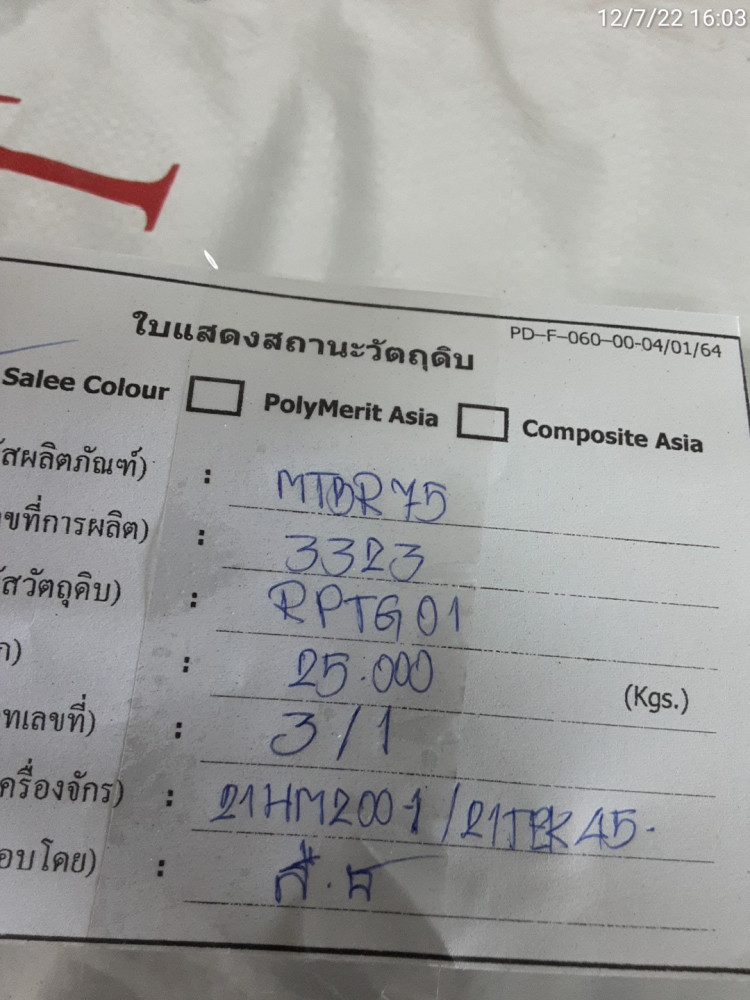 12/7/22 16:03
ใบแสดงสถานะวัตถุดิบ PD-F-060-00-04/01/64
Salee Colour PolyMerit Asia Composite Asia
สผลิตภัณฑ์) : MTBR75
ขที่การผลิต) : 3323
สวัตถุดิบ) : RPTG01
ก) : 25.000 (Kgs.)
ทเลขที่) : 3/1
ครื่องจักร) : 21HM2001/21TEK45.
อบโดย) :